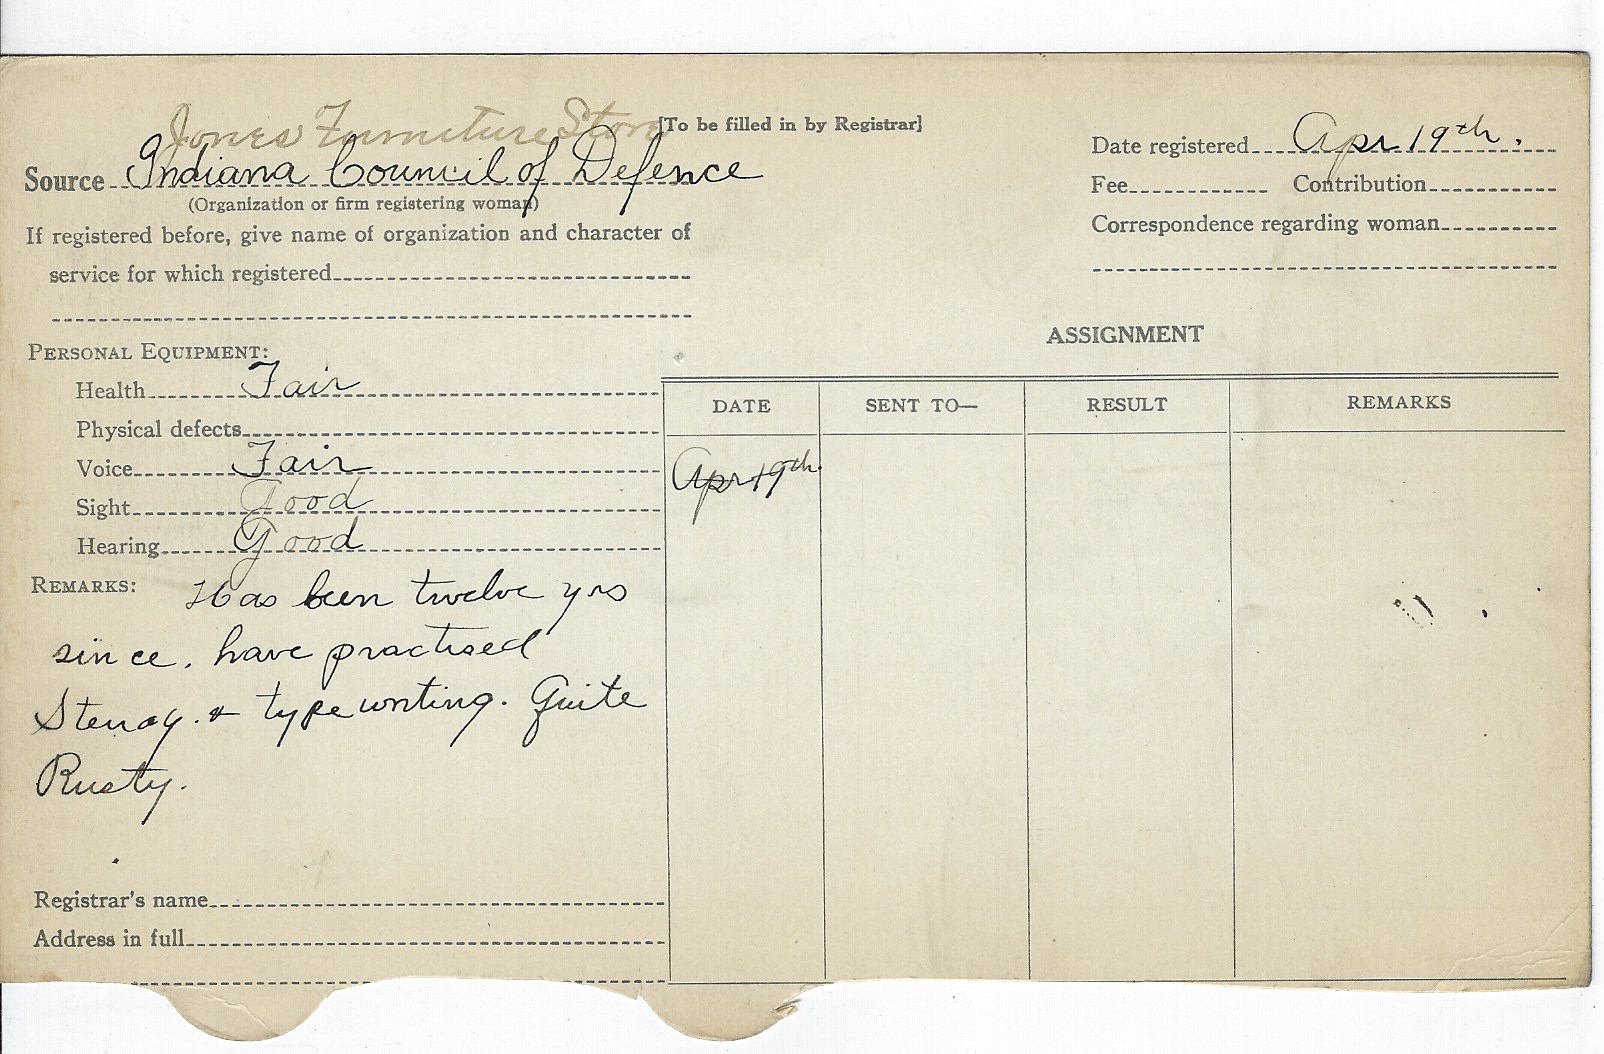 Jones Furniture Store
[To be filled in by Registrar]
Source Indiana Council of Defence
(Organization or firm registering woman)
If registered before, give name of organization and character of
service for which registered
Date registered Apr 19th.
Fee Contribution
Correspondence regarding woman
PERSONAL EQUIPMENT:
Health Fair
Physical defects
Voice Fair
Sight Good
Hearing Good
REMARKS: Has been twelve yrs
since. have practised
Stenog. & type writing. Quite
Rusty.
Registrar's name
Address in full
ASSIGNMENT
DATE SENT TO— RESULT REMARKS
Apr 19th